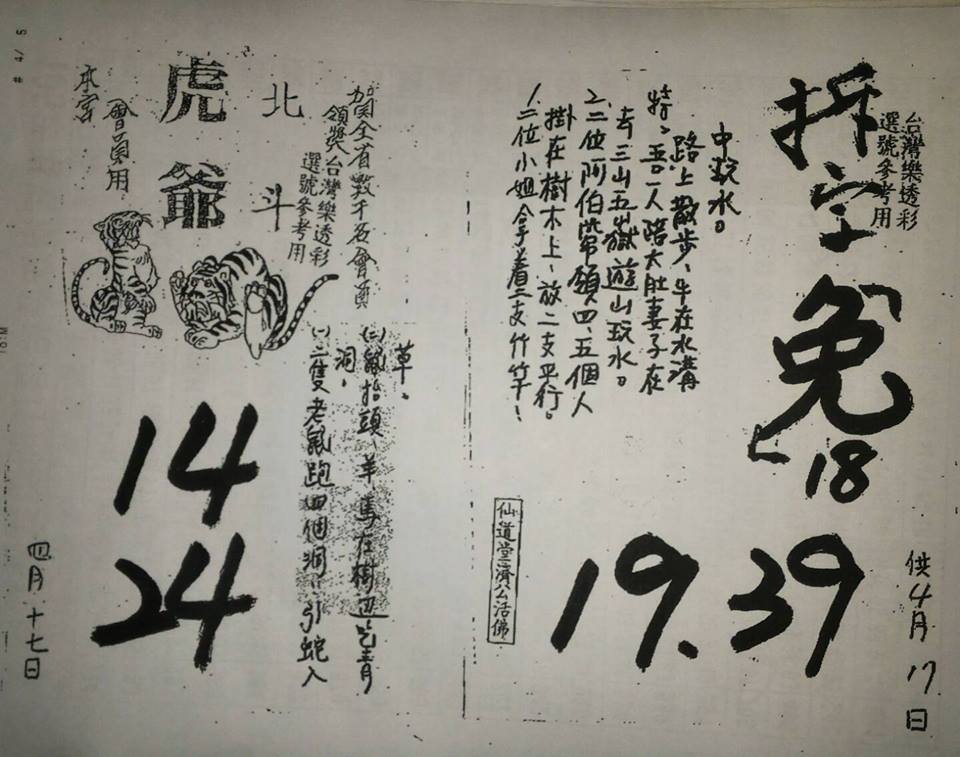 台灣樂透彩
選號參考用
拆字兔
18
19.39
供4月17日
1.二位小姐合拿着二支竹竿!
掛在樹木上、放二支平行。
2、二位阿伯帶領四、五個人
去三山五嶽遊山玩水。
特、一人陪大肚妻子在
路上散步、牛在水溝
中玩水。
仙道堂濟公活佛
賀全省數千名會員
領獎台灣樂透彩
選號參考用
北斗
虎爺
會員用
(一)二隻老鼠跑四個洞,引蛇入
洞。
(二)鼠抬頭、羊馬在樹邊吃青
草。
14
24
四月十七日
# 4/ 5